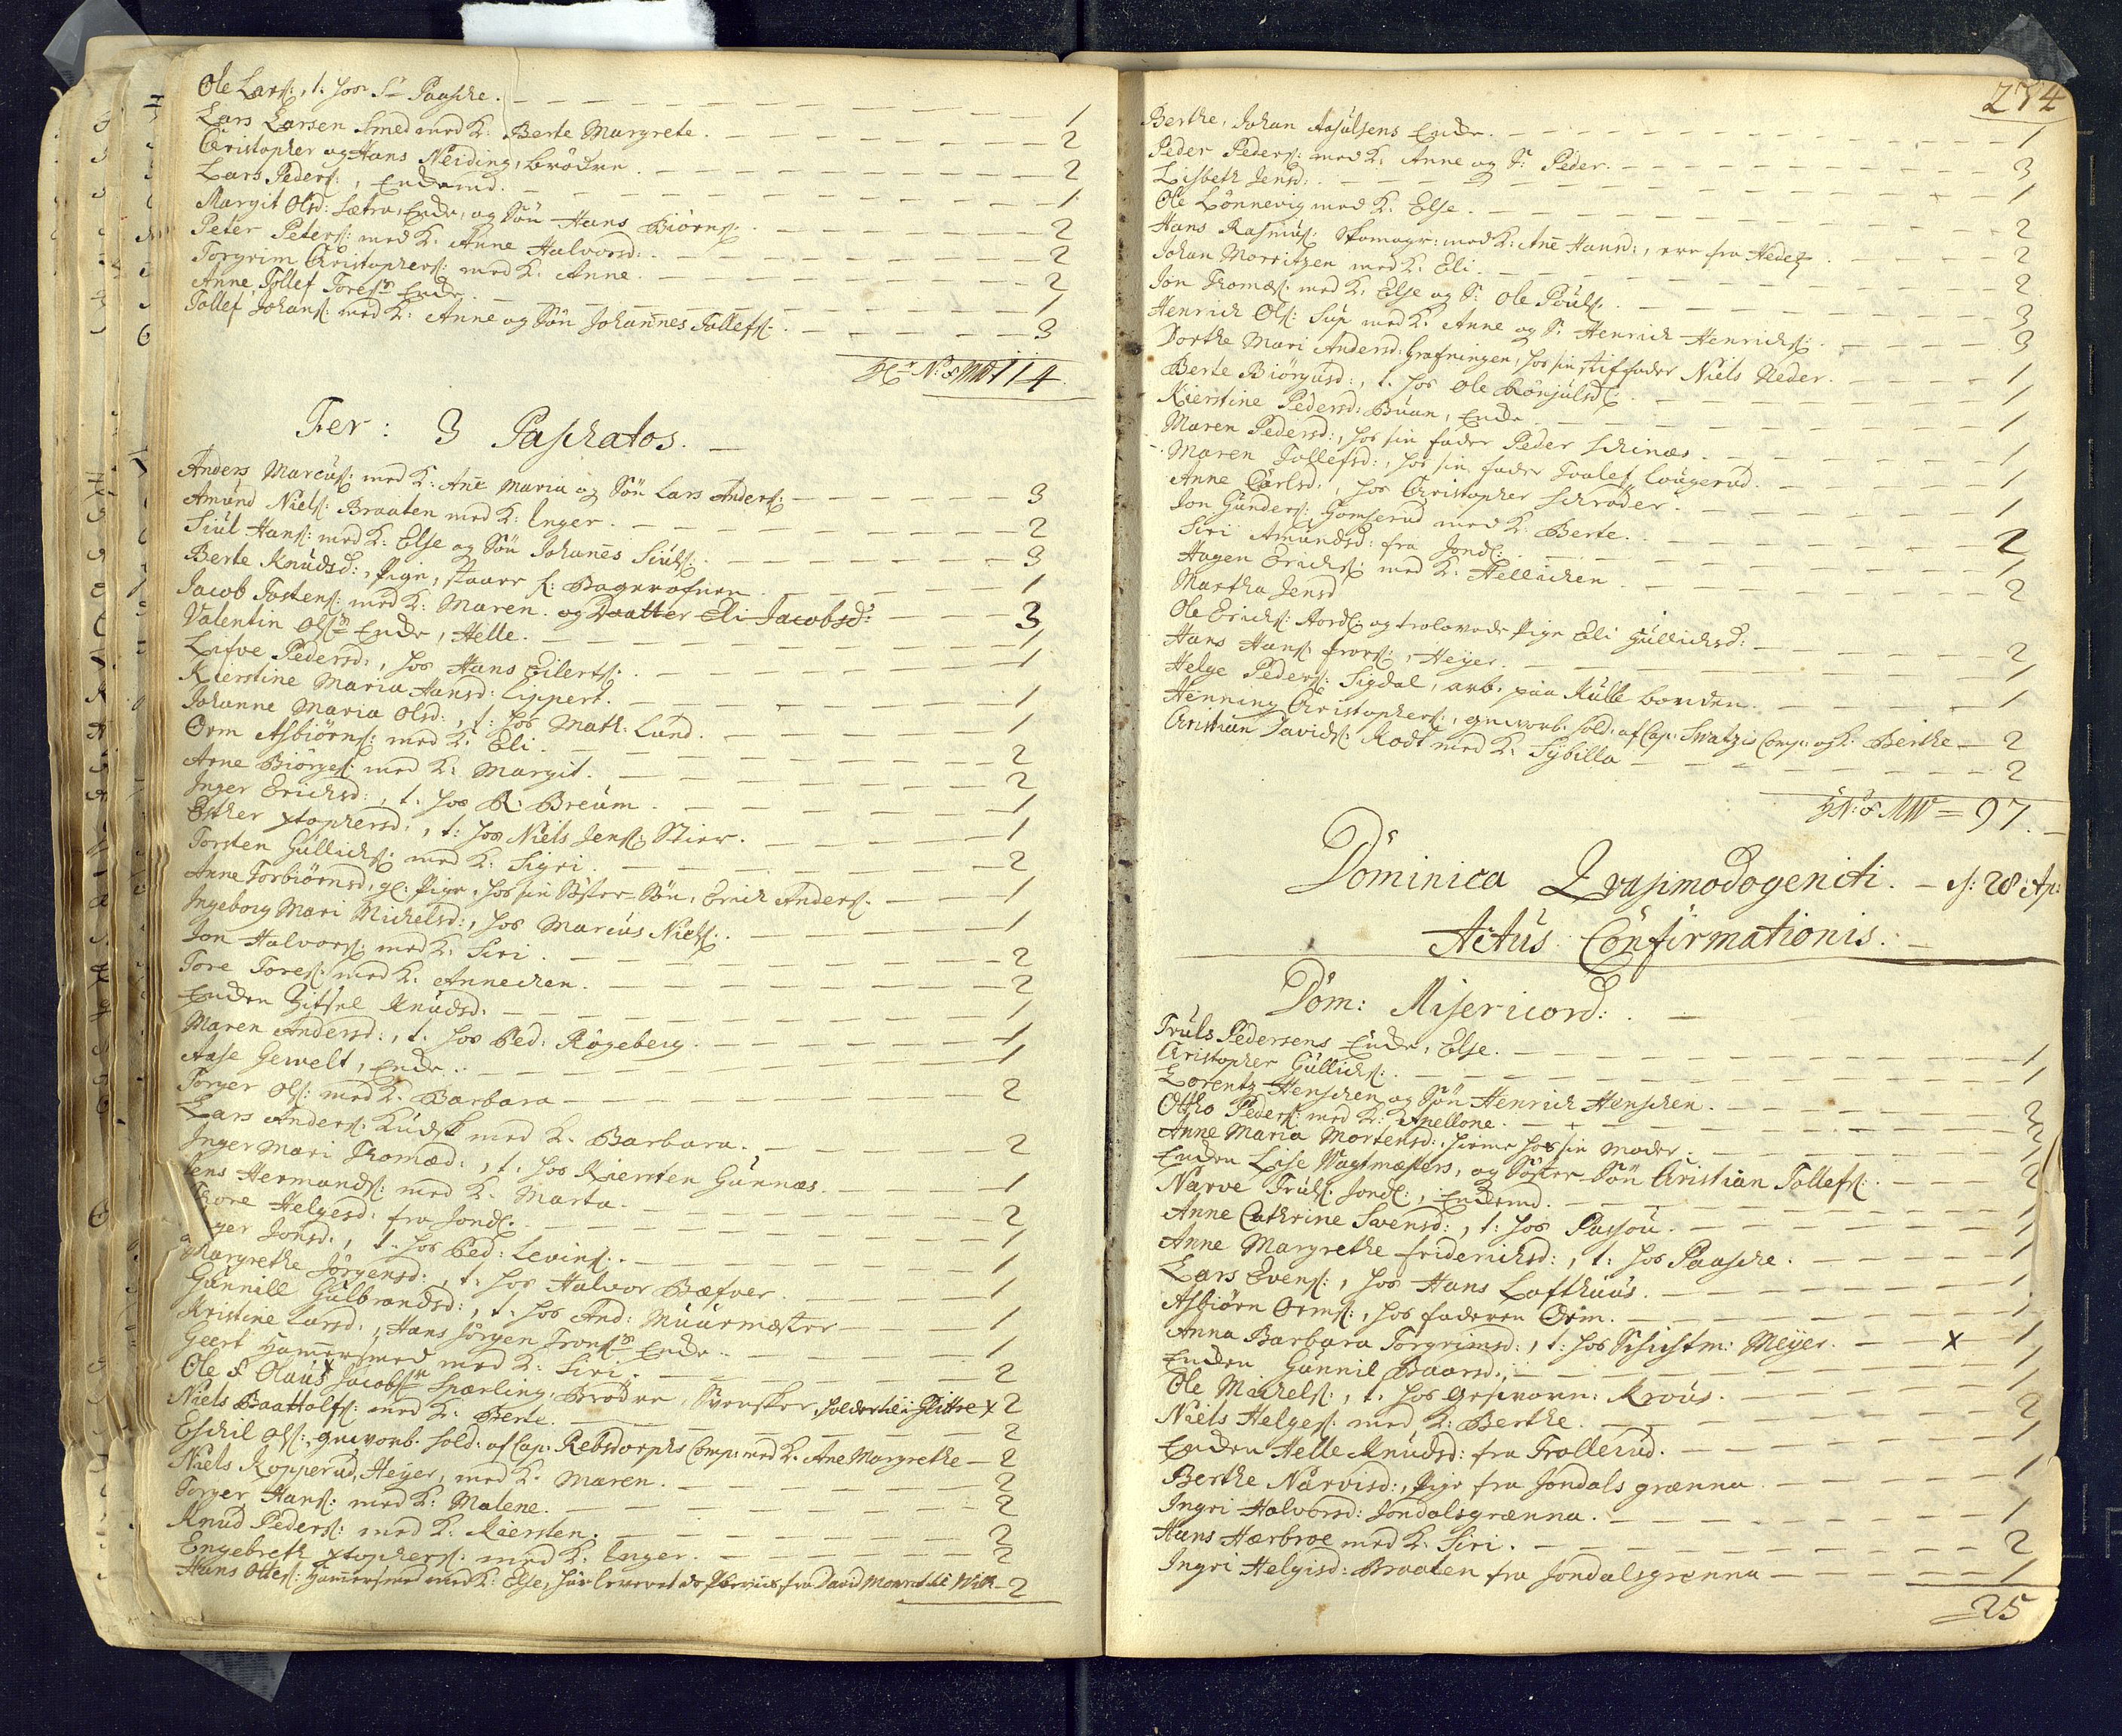 Ole Lars: t. hos Sr Paasche. 1
Lars Larsen Smed med K: Berte Margrete. 2
Christopher og Hans Neiding, brödre 2
Lars Peders:, Enkemd. 1
Margit Olsd: Sætra, Enke, og Sön Hans Biörns: 2
Peter Peters: med K: Anne Halvorsd: 2
Torgrim Christophers: med K: Anne. 2
Anne, Tollef Tores: Enke 1
Tollef Johans: med K: Anne og Sön Johannes Tollefs: 3
114.
Fer: 3 Paschatos.
Anders Marcus: med K: Ane Maria og Sön Lars Anders: 3
Amund Niels: Braaten med K: Inger. 2
Siul Hans: med K: Else og Sön Johanes Siuls: 3
Berte Knudsd:, Pige, 1
Jacob Tostens: med K: Maren. og Daatter Eli Jacobsd: 3
Valentin Ols: Enke, Helle. 1
Lisve Pedersd:, hos Hans Eilerts: 1
Kierstine Maria Hansd: Lippert. 1
Johanne Maria Olsd:, t: hos Math: Lund. 1
Orm Asbiörns: med K: Eli. 2
Arne Biörges: med K: Margit. 2
Inger Erichsd:, t. hos R: Breum. 1
Esther xtophersd:, t: hos Niels Jens: Stier. 1
Torsten Gullichs: med K: Sigri. 2
Anne Torbiörnsd, gl: Pige, hos sin Söster Sön, Erich Anders: 1
Ingeborg Mari Michelsd:, hos Marcus Niels: 1
Jon Halvors: med K: Siri. 2
Tore Tores: med K: Annechen. 2
Enken Zitsel Knudsd. 1
Maren Andersd:, t. hos Ped: Rögeberg. 1
Aase Gewelt, Enke. 1
Torger Ols: med K: Barbara 2
Lars Anders: Kudsk med K: Barbara. 2
Inger Mari Thomæd:, t. hos Kiersten Gunnæs. 1
Jens Hermands: med K: Marta. 2
Thore Helgesd: fra Jond: 1
Jonsd:, t. hos Ped: Levins: 1
Margrethe Jörgensd:, t: hos Halvor Bæfver. 1
Gunnill Gulbrandsd:, t. hos And: Muurmæster 1
Kristine Larsd:, Hans Jörgen Trons: Enke. 1
Geert Hamersmed med K: Siri. 2
Ole & Olaus Jacobs: Spærling, Brödre, Svensker, x 2
Niels Baattolfs: med K: Berte. 2
Eschil Ols:, gevorb. Sold: af Cap: Rebsdorphs Comp: med K: Ane Margrethe 2
Niels Kopperud, Heyer, med K: Maren. 2
Torger Hans: med K: Malene. 2
Knud Peders: med K: Kiersten. 2
Engebreth xtophers: med K: Inger. 2
Hans Ottes: Hamersmed med K: Else, fra David 2
274
Berthe, Johan Aasulsens Enke. 1
Peder Peders: med K: Anne og S: Peder. 3
Lisbeth Jensd: 1
Ole Lönnevig med K: Else. 2
Hans Rasmus: Skomager: med K: Ane Hansd:, 2
Johan Morritzen med K: Eli. 2
Jon Thomæs: med K: Else og S: Ole Pouls: 3
Henrich Ols: Sup med K: Anne og S: Henrich Henrichs: 3
Dorthe Mari Andersd: Grafningen, hos sin Stiffader Niels Reder. 1
Berte Biörgusd:, t. hos Ole 1
Kierstine Pedersd: Buan, Enke 1
Maren Pedersd:, hos sin fader Peder Schinæs. 1
Maren Tollefsd:, hos sin fader Toalef Lougerud. 1
Anne Carlsd:, hos Christopher Schröder. 1
Jon Gunders: Gomserud med K: Berte. 2
Siri Amundsd: fra Jond: 1
Hagen Erichs: med K: Hellichen 2
Martha Jensd
Ole Erichs: og trolovede Pige Eli Gullichsd: 2
Hans Hans: Heyer. 1
Helge Peders: Sigdal, arb. paa Kulle bonden. 1
Henning Christophers:, gevorb. Sold: af Cap: Swatzis Comp: og K: Berthe 2
Christian Davids: Rodt med K: Sybilla 2
97.
Dominica Qvasimodogeniti. d: 28 Ap:
Actus Confirmationis.
Dom: Misericord:
Truls Pedersens Enke, Else. 1
Christopher Gullichs: 1
Lorentz Henschen og Sön Henrich Henschen. 2
Ottho Peders: med K: Apellone. 2
Anne Maria Mortensd:, hos sin Moder. 1
Enken Lise Wagtmæsters, og Söster Sön Christian Tollefs: 2
Narve Truls: Jond:, Enkemd. 1
Anne Cathrine Svensd:, t: hos Passou. 1
Anne Margrethe Friderichsd:, t: hos Paasche. 1
Lars Evens:, hos Hans Lofthuus. 1
Asbiörn Orms:, hos faderen Orm. 1
Anna Barbara Torgrimsd:, t: hos Schichtm: Meyer. x 1
Enken Gunnil Baarsd: 1
Ole Michels:, t. hos Gesworn: Krous. 1
Niels Helges: med K: Berthe. 2
Enken Helle Knudsd: fra Trollerud. 1
Berthe Narvisd:, Pige fra Jondals grænna. 1
Ingri Halvorsd: Jondalsgrænna. 1
Hans Hærbroe med K: Siri. 2
Ingri Helgisd: Braaten fra Jondalsgrænna 1
25